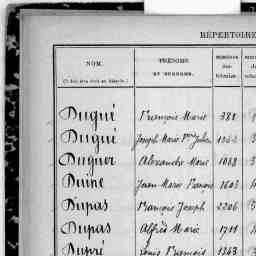 RÉPERTOIRE
NOM. PRÉNOMS
ET SURNOMS. NUMÉROS
des
bulletins.
Dugué François Marie 381
Dugué Joseph Marie
Duguer Alexandre Marie 1068
Duine Jean Marie François 1603
Dupas François Joseph 2206
Dupas Alfred Marie 1711
Dupré Louis François 1263